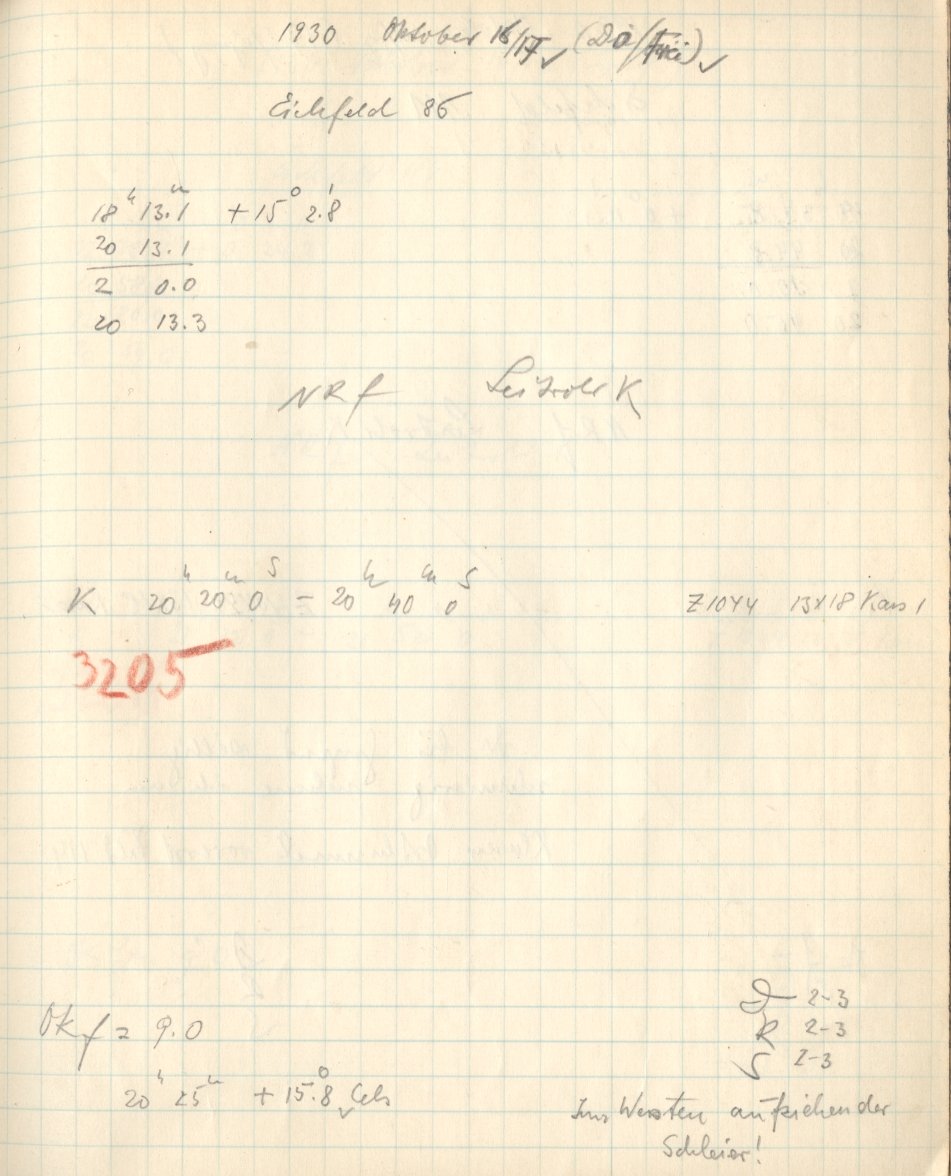 1930 Oktober 16/17 (Do/Frei)
Eichfeld 86
18h 13.m1 +15° 2.'8
20 13.1
2 0.0
20 13.3
NRf Leitrohr K
K 20h 20m 0s - 20h 40m 0s Z1044 13x18 Kass 1
3205
D 2-3
R 2-3
S 2-3
Ok f = 9.0
20h 25m +15.°8 Cels
Im Westen aufziehender
Schleier!